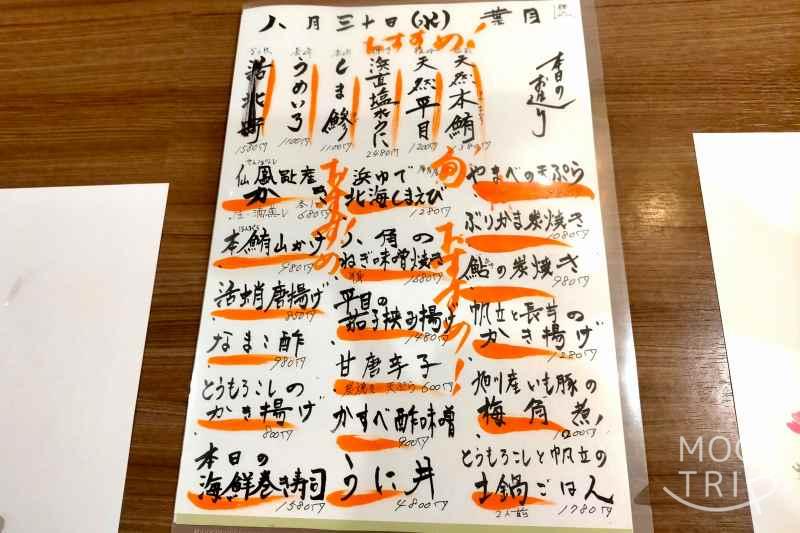 八月三十日(水) 葉月
おすすめ!
本日のお造り
天然本鮪
天然平目
1200円
浜直塩水うに
2480円
しま鯵
1100円
うめいろ
1100円
活北寄
1580円
旬
おすすめ!
やまべの天ぷら
ぶりかま炭焼き
1080円
鮎の炭焼き
980円
帆立と長芋の
かき揚げ
1280円
旭川産いも豚の
梅角煮!
1200円
とうもろこしと帆立の
土鍋ごはん
2人前 1780円
浜ゆで
北海しまえび
1280円
八角の
ねぎ味噌焼き
1680円
平目の
茄子挟み揚げ
1480円
甘唐辛子
炭焼き 天ぷら 600円
かすべ酢味噌
900円
うに丼
4800円
おすすめ
仙鳳趾産
かき
生・酒蒸し
680円
本鮪山かけ
980円
活蛸唐揚げ
850円
なまこ酢
980円
とうもろこしの
かき揚げ
800円
本日の
海鮮巻き寿司
1580円
MOO
TRIP